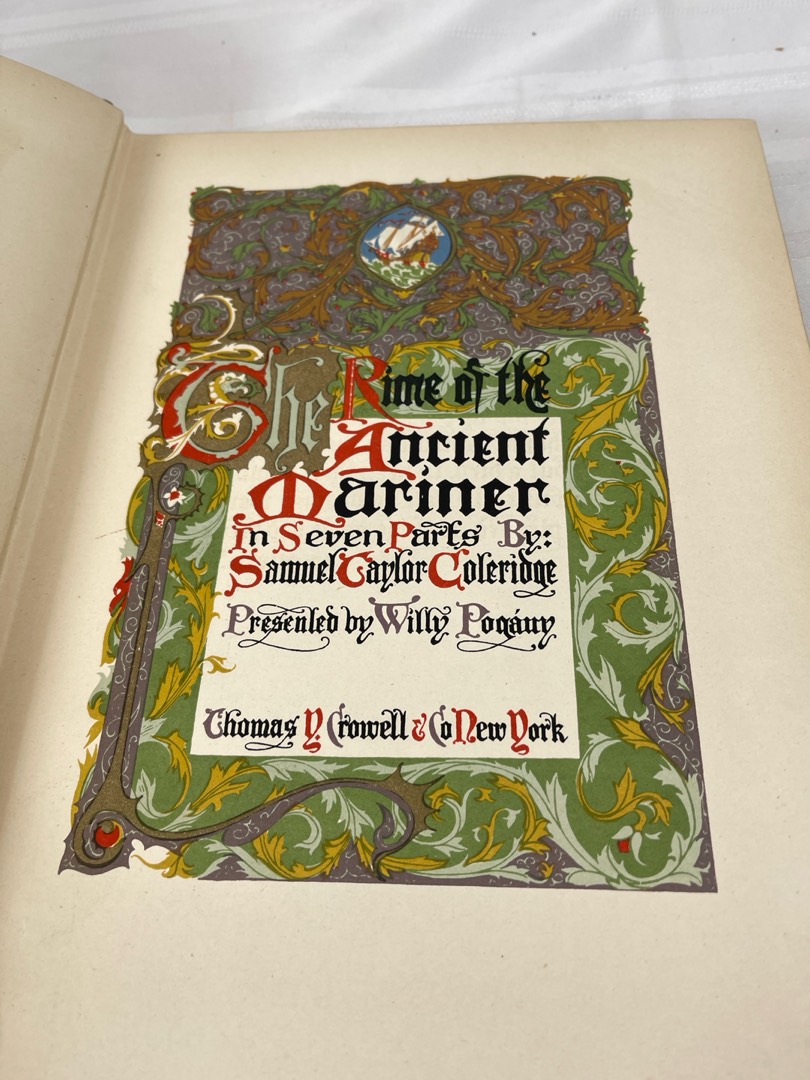 The Rime of the
Ancient
Mariner
In Seven Parts By:
Samuel Taylor Coleridge
Presented by Willy Pogány
Thomas Y. Crowell & Co New York